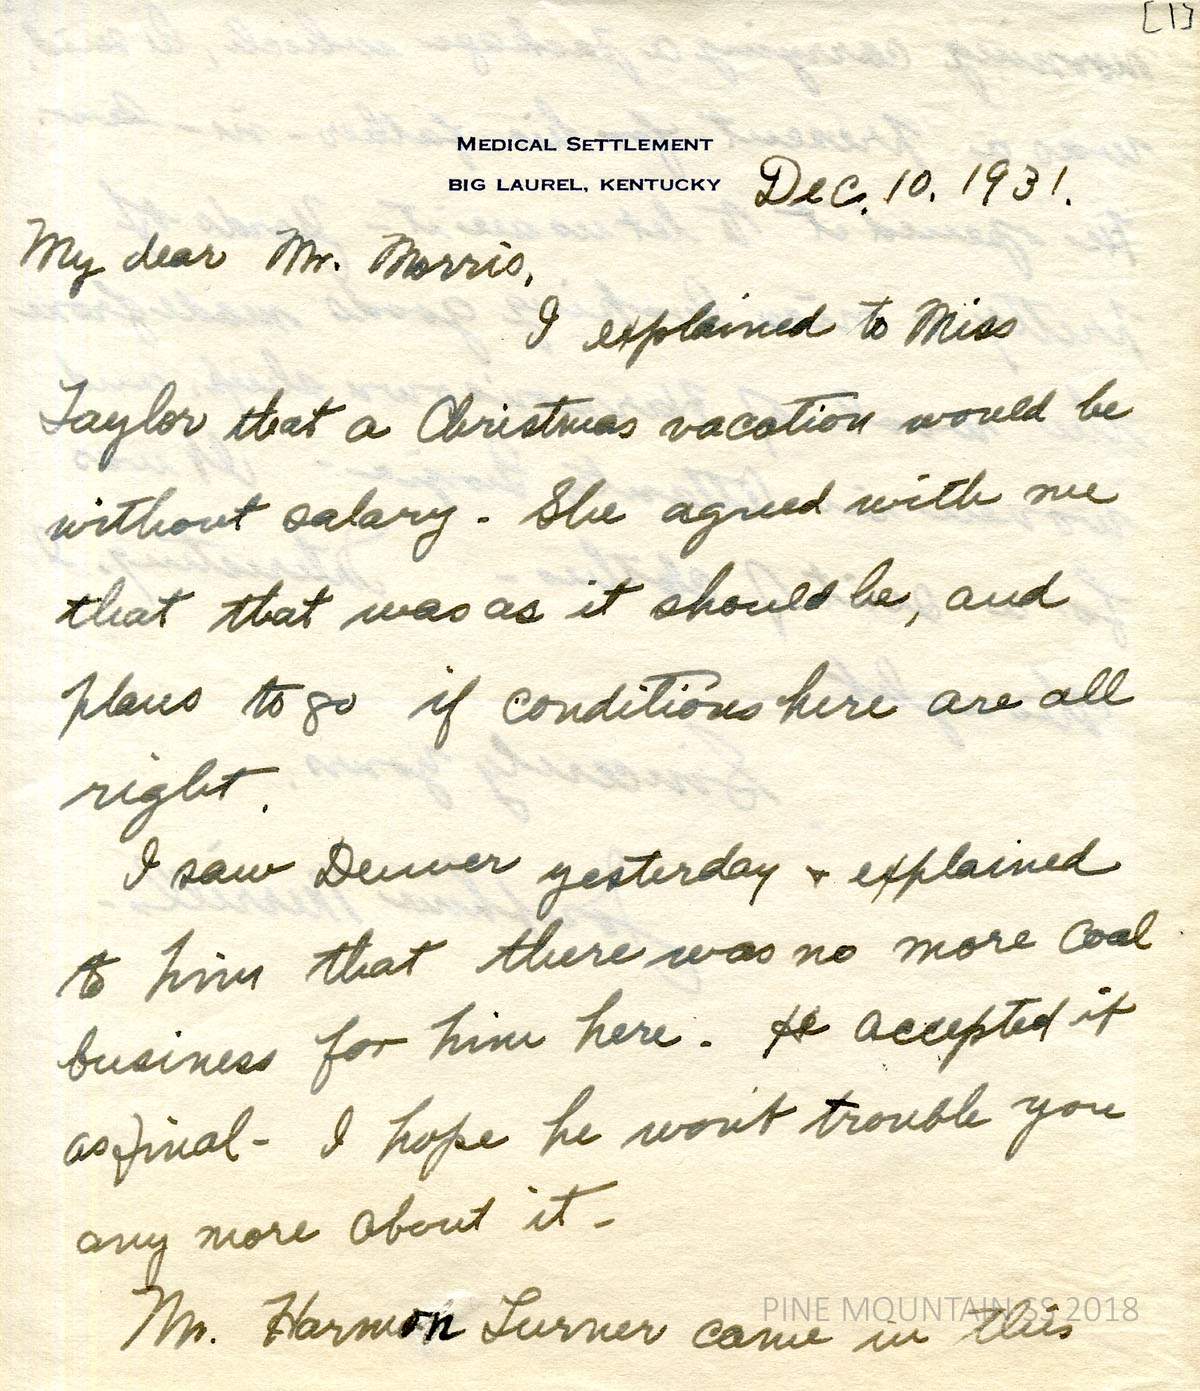 [1]
MEDICAL SETTLEMENT
BIG LAUREL, KENTUCKY
Dec. 10. 1931.
My dear Mr. Morris,
I explained to Miss
Taylor that a Christmas vacation would be
without salary. She agreed with me
that that was as it should be, and
plans to go if conditions here are all
right.
I saw Denver yesterday & explained
to him that there was no more coal
business for him here. He accepted it
as final - I hope he won't trouble you
any more about it -
Mr. Harmon Turner came in this
PINE MOUNTAIN SS 2018